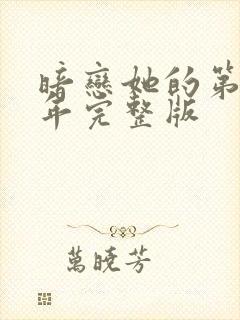 暗戀她的第
年完整版
萬曉芳